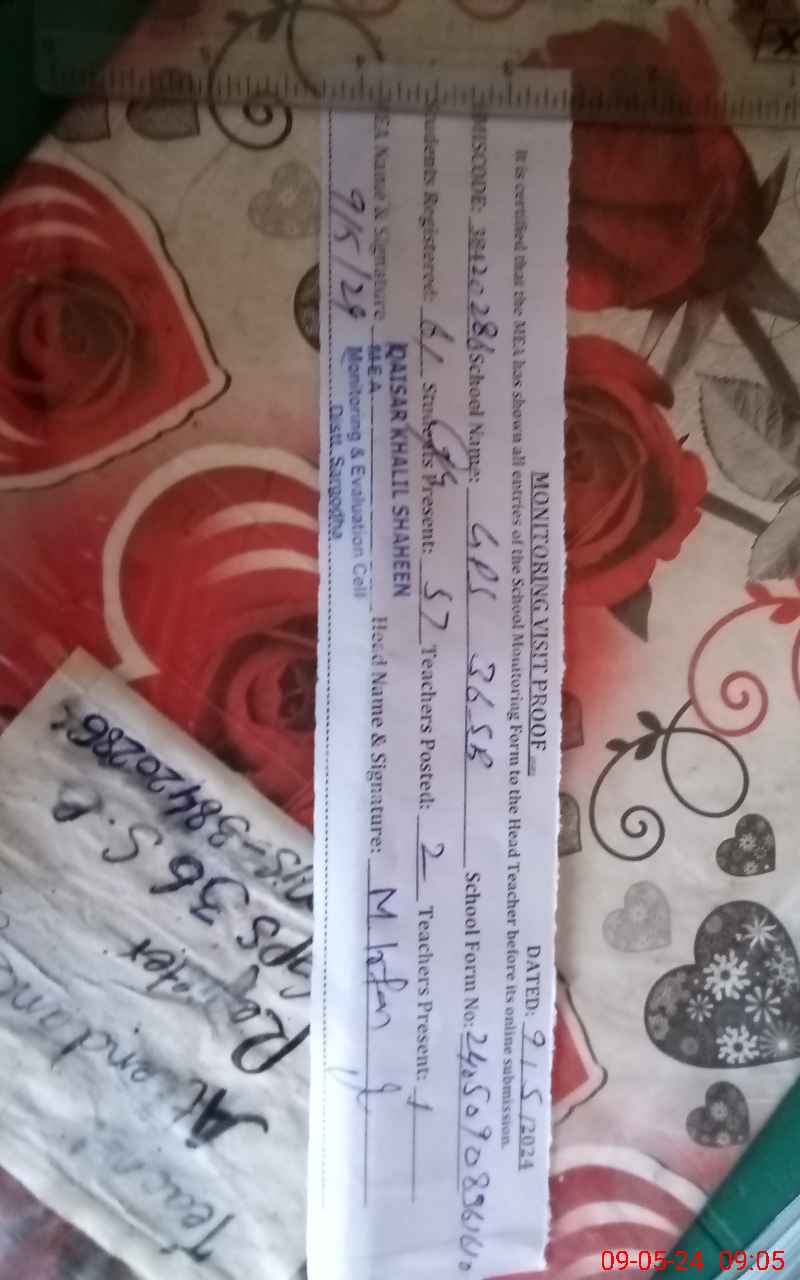 MONITORING VISIT PROOF DATED: 9/5/2024
It is certified that the MEA has shown all entries of the School Monitoring Form to the Head Teacher before its online submission.
EMISCODE: 38420286 School Name: GPS 36 SB School Form No:
Students Registered: 61 Students Present: 57 Teachers Posted: 2 Teachers Present: 1
MEA Name & Signature Head Name & Signature: M Irfan
QAISAR KHALIL SHAHEEN
M.E.A
Monitoring & Evaluation Cell
Distt. Sargodha
9/5/24
Attendance
Register
GPS 36 S.B
38420286
09-05-24 09:05